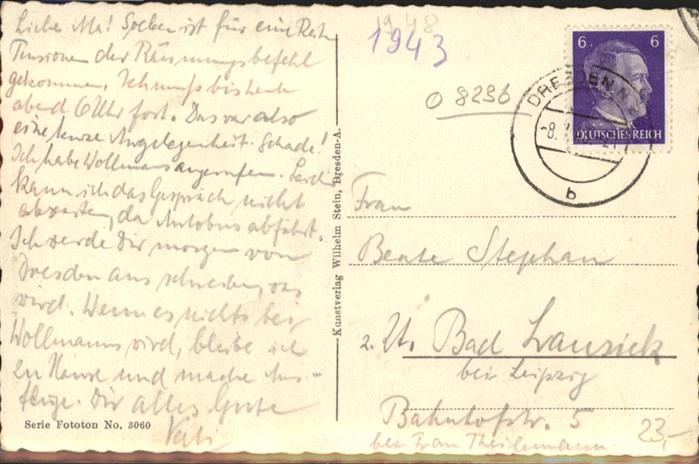 Liebe Ma! Soeben ist für eine Reihe
Pensionen der Räumungsbefehl
gekommen. Ich muß bis heute
abend 6 Uhr fort. Das war also
eine kurze Angelegenheit. Schade!
Ich habe Wollmanns angerufen. Leider
kann ich das Gespräch nicht
abwarten, da Autobus abfährt.
Ich werde Dir morgen von
Dresden aus schreiben, was
wird. Wenn es nichts bei
Wollmanns wird, bleibe ich
zu Hause und mache Aus-
flüge. Dir alles Gute
Vati
Serie Fototon No. 3060
Kunstverlag Wilhelm Stein, Dresden-A.
1948
1943
0 8296
6. 6
DEUTSCHES REICH
DRESDEN
b
Frau
Beate Stephan
z. Zt. Bad Lausick
bei Leipzig
Bahnhofstr. 5
bei Frau
23,-